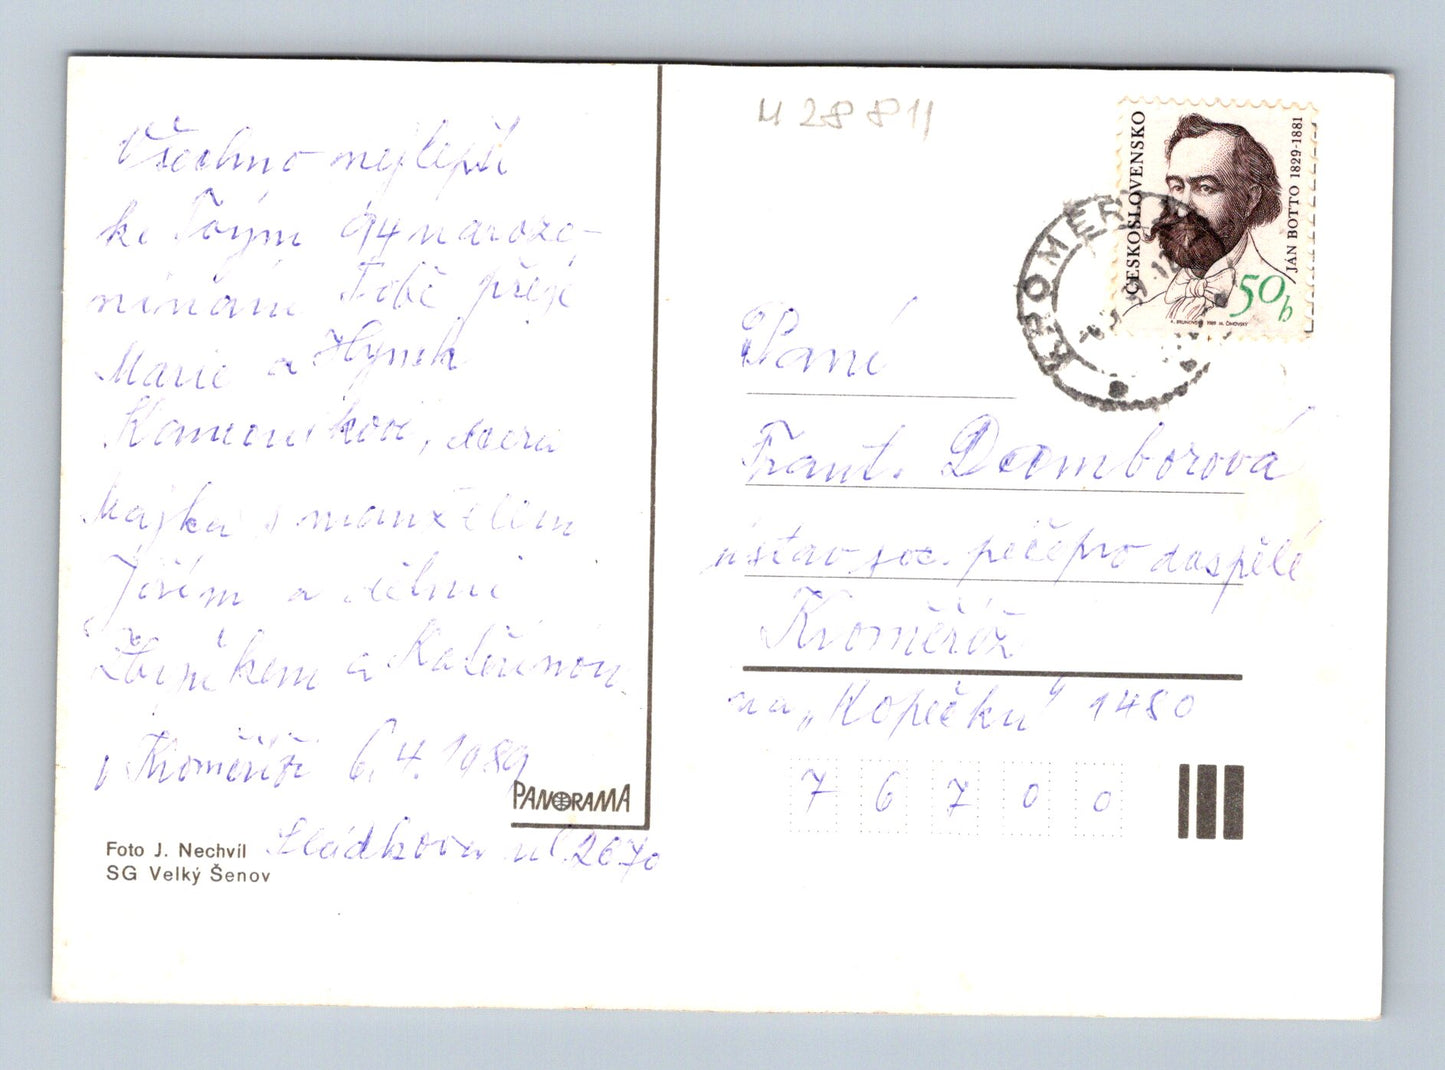 Všechno nejlepší
ke Tvým 94 narozo-
ninám Tobě přeje
Marie a Hynek
Kameníkovi, dcera
Majka s manželem
Jiřím a dětmi
Zbyňkem a Kateřinou.
v Kroměříži 6.4.1989
Sládkova ul 2670
PANORAMA
Foto J. Nechvíl
SG Velký Šenov
4 28811
ČESKOSLOVENSKO
JÁN BOTTO 1829-1881
50h
KROMĚŘ
Paní
Frant. Damborová
ústav soc. péče pro dospělé
Kroměříž
na „Kopečku" 1480
76700